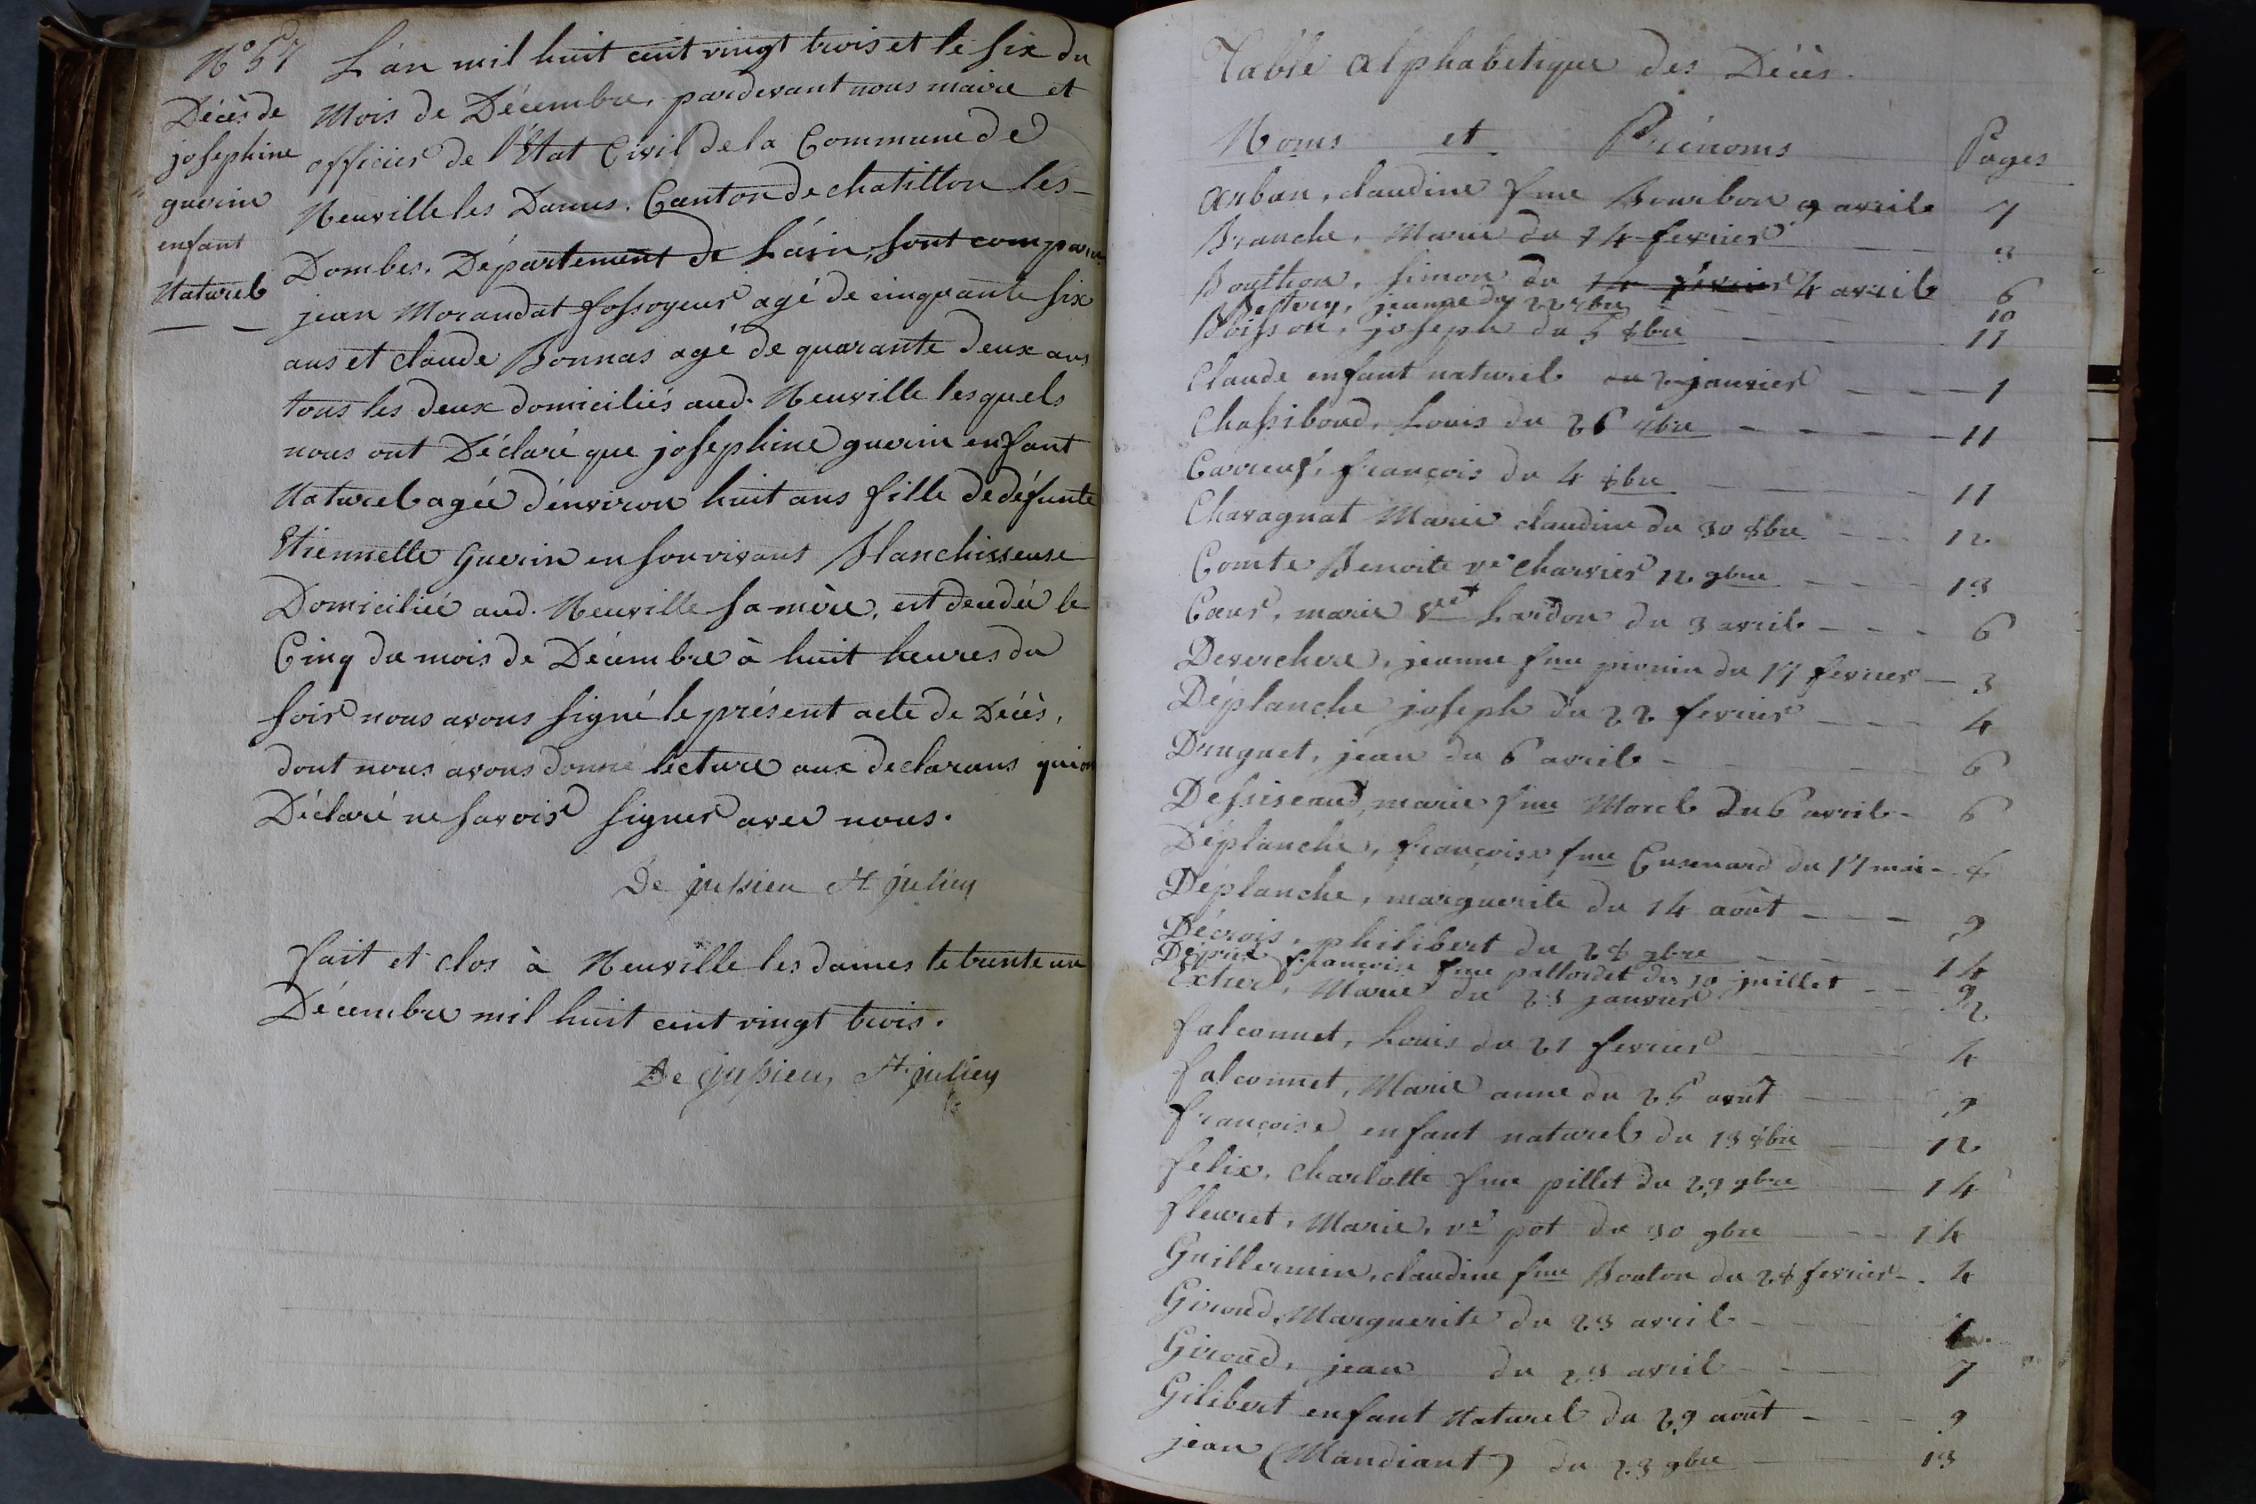 N° 57
Décès de
josephine
guerin
enfant
Naturel
L'an mil huit cent vingt trois et le six du
Mois de Décembre, pardevant nous maire et
officier de l'Etat Civil de la Commune de
Neuville les Dames. Canton de chatillon les
Dombes. Département de L'ain, sont comparus
jean Morandat fossoyeur agé de cinquante six
ans et claude Bonnas agé de quarante deux ans
tous les deux domiciliés aud. Neuville lesquels
nous ont Déclaré que josephine guerin enfant
Naturel agée d'environ huit ans fille de défunte
Etiennette Guerin en son vivant Blanchisseuse
Domiciliée aud. Neuville sa mère, est decedée le
Cinq du mois de Décembre à huit heures du
soir nous avons signé le présent acte de Décès,
dont nous avons donné lecture aux declarans qui on
Déclaré ne savoir signer avec nous.
De jussieu St julien
Fait et clos à Neuville les dames le trente un
Décembre mil huit cent vingt trois.
De jussieu, St julien
Table alphabetique des Décès.
Noms et Prénoms Pages
Arban, claudine fme Bourbon 9 avril 7
Branche, Marie du 14 fevrier 3
Bouthion, simon du 14 fevrier 4 avril 6
jeanne du 22 7bre 10
Boisson, joseph du 5 8bre 11
Claude enfant naturel du 2 janvier 1
Chassiboud, Louis du 26 7bre 11
françois du 4 8bre 11
Charagnat Marie claudine du 30 8bre 12
Comte Benoite ve Charvier 12 9bre 13
Cœur, marie Lardon du 3 avril 6
Deverchere, jeanne fme pironin du 17 fevrier 3
Déplanche joseph du 22 fevrier 4
Druguet, jean du 6 avril 6
marie fme Morel du 6 avril 6
Déplanche, françoise fme du 17 mai 8
Déplanche, marguerite du 14 août 9
Décrois, philibert du 28 9bre 14
françoise fme du 30 juillet 9
Marie du 23 janvier 2
falconnet, Louis du 21 fevrier 4
falconnet, Marie anne du 25 août 9
françoise enfant naturel du 13 8bre 12
felix, Charlotte fme pillet du 29 9bre 14
fleuret, Marie, ve pot du 30 9bre 14
Guillermin, claudine fme Bouton du 28 fevrier 4
Giroud, Marguerite du 23 avril
Giroud, jean du 23 avril 7
Gilibert enfant Naturel du 29 août 9
jean (Mandiant) du 23 9bre 13